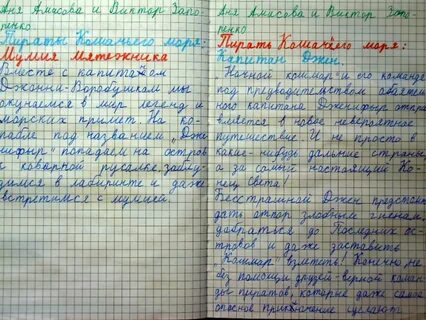 Аня Амасова и Виктор Запо-
ренко
Пираты Кошачьего моря:
Мумия Мятежника
Вместе с капитаном
Джонни-Воробушком мы
окунаемся в мир легенд и
морских примет. На ко-
рабле под названием „Дже
нифыр" попадаем на остров
к коварной русалке, заблу-
димся в лабиринте и даже
встретимся с мумией.
Аня Амасова и Виктор Запо-
ренко
Пираты Кошачьего моря:
Капитан Джен.
„Ночной кошмар" и его команда
под предводительством обаятель
ного капитана Дженифыр отпра
вляется в новое невероятное
путешествие. И не просто в
какие-нибудь дальние страны,
а за самый настоящий Ко-
нец Света!
Бесстрашной Джен предстоит
дать отпор злобным гиенам,
добраться до Последних ос-
тровов и даже заставить
„Кошмар" взлететь! Конечно, не
без помощи друзей-верной коман
ды пиратов, которые даже самое
опасное приключение сделают